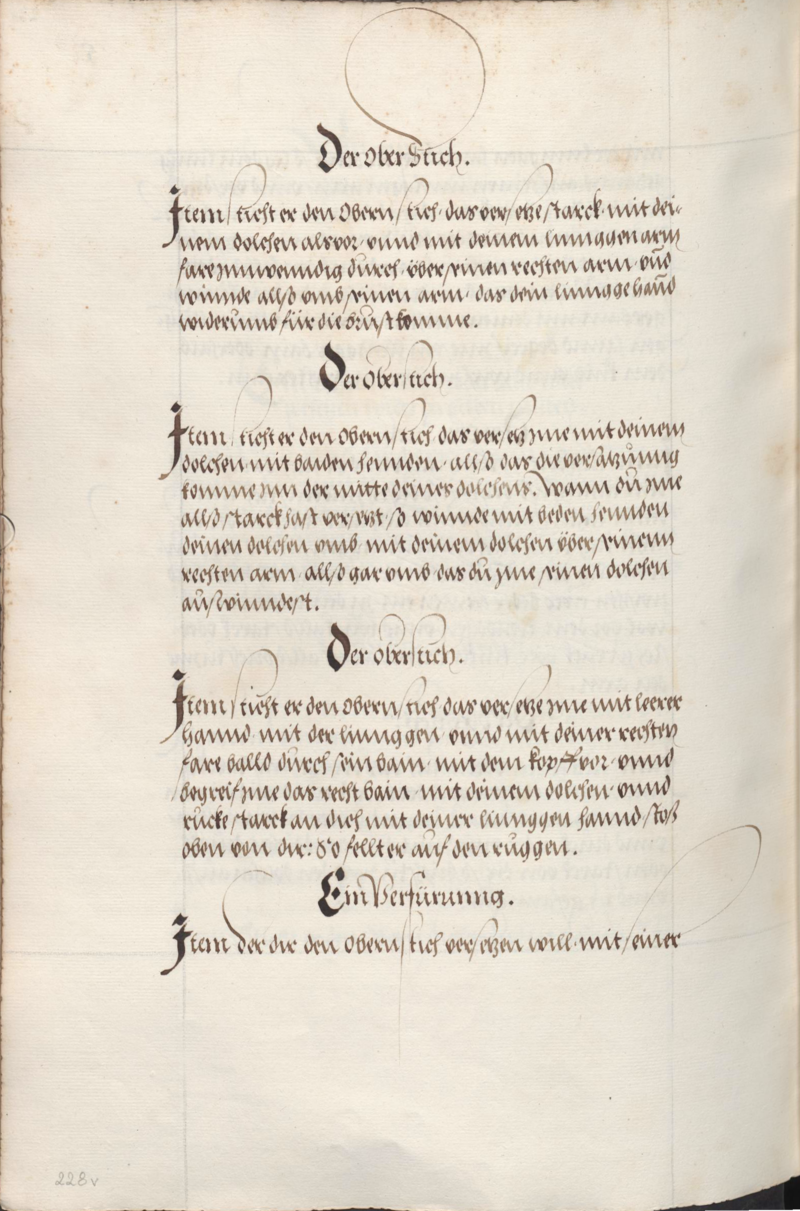 Der ober Stich.
Item sticht er den Obern stich, das versetze starck, mit dei-
nem dolchen als vor, vnnd mit deinem linnggen arm
fare ynnwenndig durch, über seinen rechten arm, vnd
winnde allso vmb seinen arm, das dein linngge hannd
widerumb für die brust komme.
Der oberstich.
Item sticht er den Obern stich das versetz yme mit deinem
dolchen, mit baiden hennden, allso das die versatzunng
komme ynn der mitte deines dolchens. Wann du yme
allso starck hast versetzt, so winnde mit beden hennden
deinen dolchen vmb, mit deinem dolchen über seinenn
rechten arm, allso gar vmb das du yme seinen dolchen
auswinndest.
Der oberstich.
Item sticht er den Obern stich das versetze yme mit leerer
hannd, mit der linnggen, vnnd mit deiner rechten
fare balld durch sein bain, mit dem kopff vor, vnnd
begreif yme das recht bain, mit deinem dolchen, vnnd
rucke starck an dich mit deiner linnggen hannd stoß
oben von dir: So fellt er auf den ruggen.
Ein Verfürunng.
Item der dir den Obern stich versetzen will, mit seiner
228v